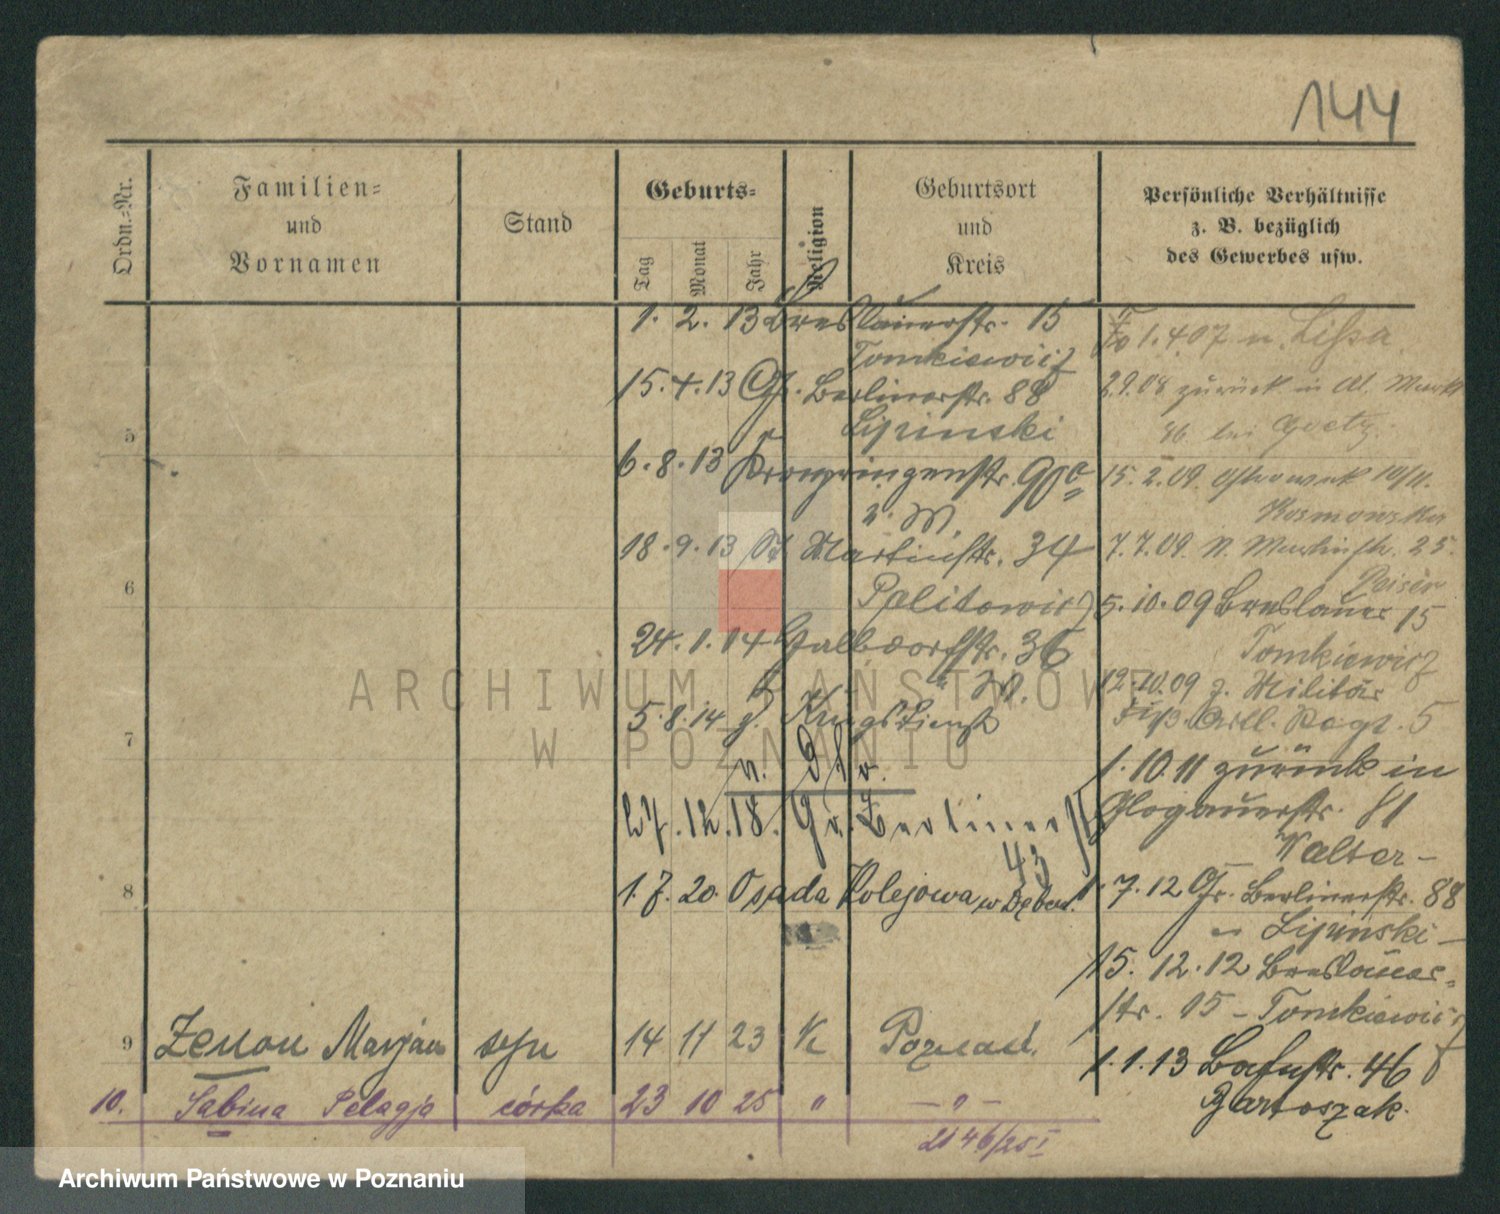 144
Ordn.-Nr.
Familien-
und
Vornamen
Stand
Geburts-
Tag
Monat
Jahr
Religion
Geburtsort
und
Kreis
Persönliche Verhältnisse
z. B. bezüglich
des Gewerbes usw.
1. 2. 13 Breslauerstr. 15
Tomkiewicz
15. 4. 13 Gr. Berlinerstr. 88
Lipinski
6. 8. 13 Kronprinzenstr. 90
18. 9. 13 St Martinstr. 34
Politowicz
24. 1. 14 Halbdorfstr. 36
5. 8. 14 z. Kriegsdienst
27. 12. 18. Gr. Berliner
43
1. 7. 20. Osada Kolejowa w
1. 4. 07 n. Lissa
2.9.08 zurück in Al. Markt
bei Goetz
15. 2. 09. 10/11.
7. 7. 09. Martinstr. 25.
5. 10. 09 Breslauer 15
Tomkiewicz
12.10.09 z. Militär
Art. Regt. 5
1. 10. 11 zurück in
Glogauerstr. 81
Walter-
1. 7. 12 Gr. Berlinerstr. 88
Lipinski-
15. 12. 12 Breslauer-
str. 15 - Tomkiewicz
1. 1. 13 46
Bartoszak.
5
6
7
8
9 Zenon Marjan syn 14 11 23 K Poznań.
10. Sabina Pelagja córka 23 10 25 " - " -
2146/25 I
ARCHIWUM PAŃSTWOWE
W POZNANIU
Archiwum Państwowe w Poznaniu